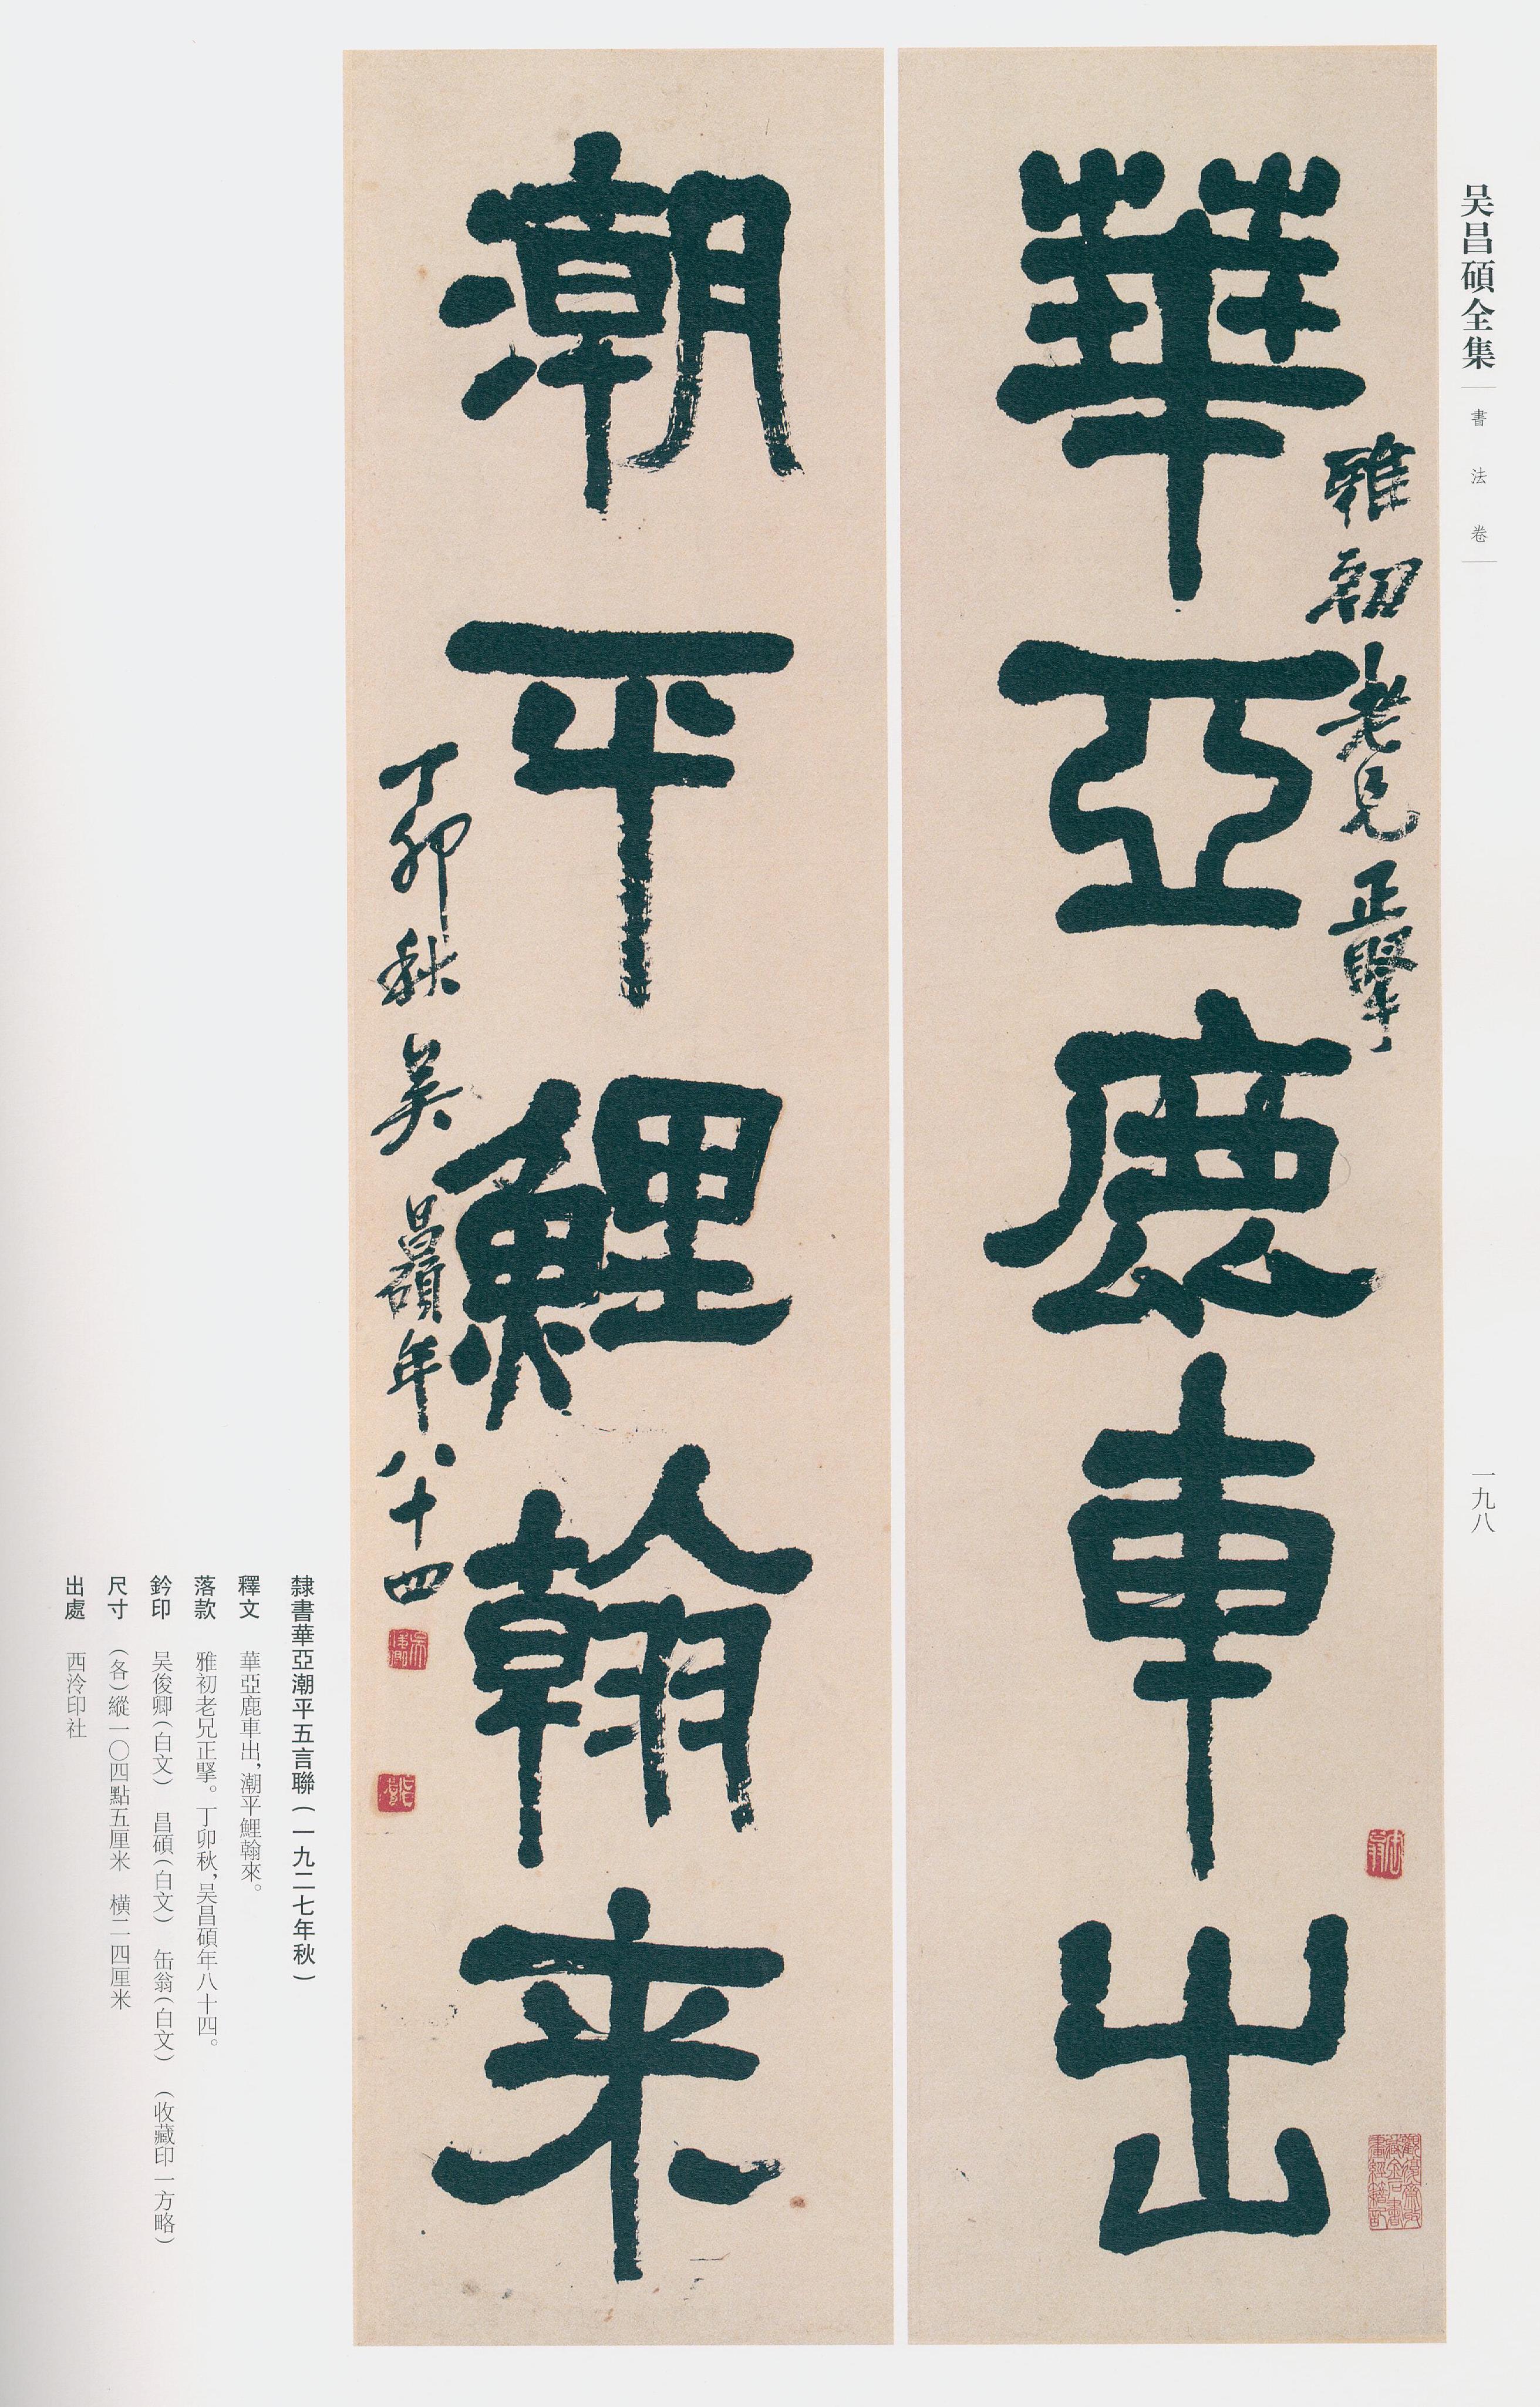 吴昌碩全集
書法卷
一九八
雅初老兄正擊
華亞鹿車出
潮平鯉翰来
丁卯秋吴昌碩年八十四
隸書華亞潮平五言聯（一九二七年秋）
釋文　華亞鹿車出，潮平鯉翰來。
落款　雅初老兄正掔。丁卯秋，吴昌碩年八十四。
鈐印　吴俊卿（白文）　昌碩（白文）　缶翁（白文）　（收藏印一方略）
尺寸　（各）縱一〇四點五厘米　橫二四厘米
出處　西泠印社